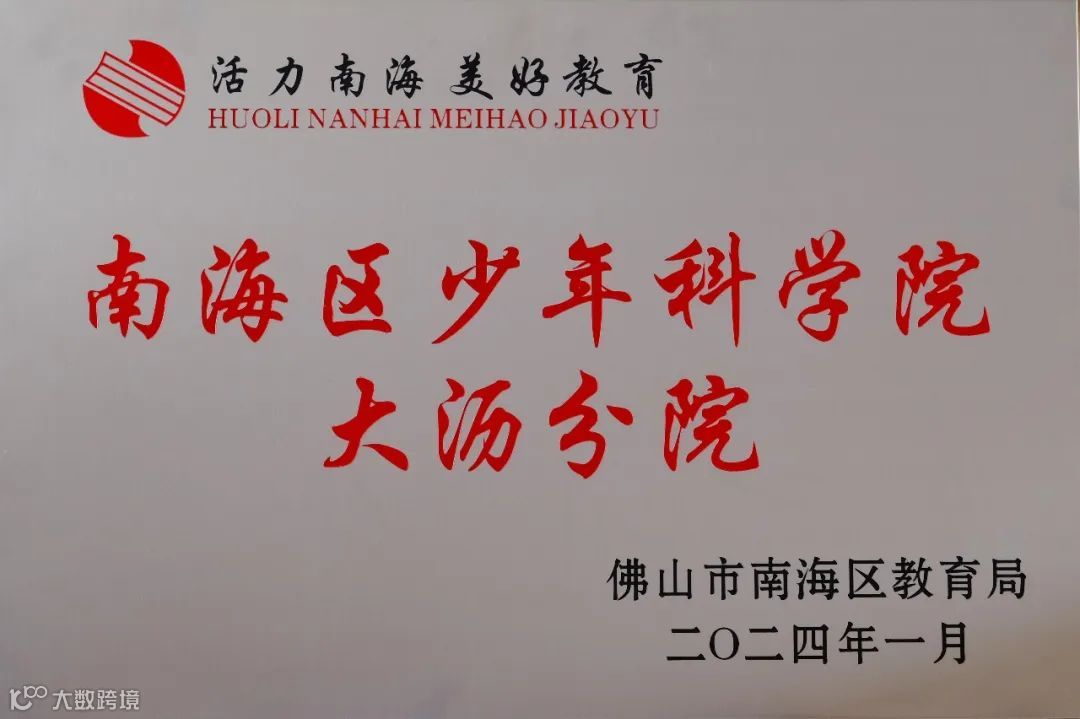 活力南海 美好教育
HUOLI NANHAI MEIHAO JIAOYU
南海区少年科学院
大沥分院
佛山市南海区教育局
二〇二四年一月
大数跨境